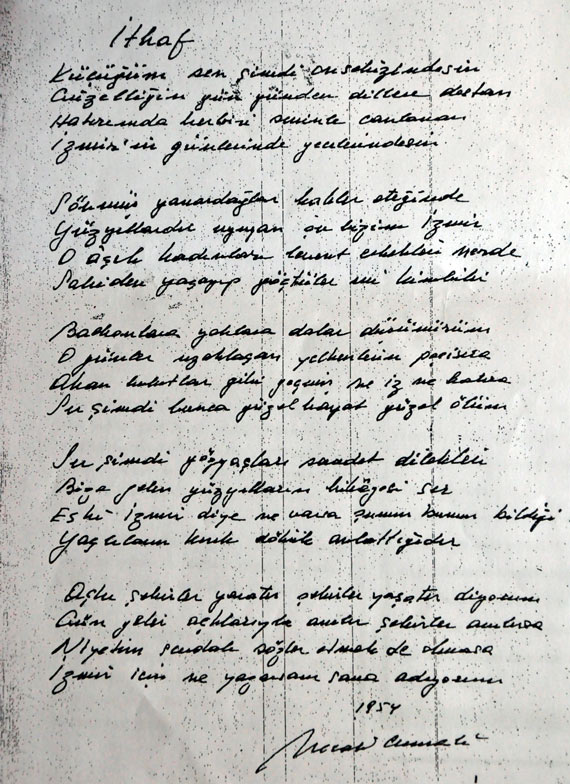 İthaf
Küçüğüm sen şimdi onsekizindesin
Güzelliğin gün günden dillere destan
Hatırımda herbiri seninle canlanan
İzmir'in günlerinde gecelerindesin
Sönmüş yanardağlar kaleler eteğinde
Yüzyıllardır uyuyan su bizim İzmir
O âşık kadınları levent erkekleri nerde
Sahiden yaşayıp göçtüler mi kimbilir
Balkonlara yollara dalar düşünürüm
O günler uzaklaşan yelkenlerin peşisıra
Akan bulutlar gibi geçmiş ne iz ne hatıra
Su şimdi bunca güzel hayat güzel ölüm
Su şimdi gözyaşları saadet dilekleri
Bize gelen yüzyılların hikâyesi
Eski İzmir diye ne varsa şunun bunun bildiği
Yaşlıların kırık dökük anlattığıdır
Aşklar şehirler yaratır şehirler yaşatır diyorum
Gün gelir aşklarıyla anılır şehirler anılırsa
Niyetim sevdalı sözler etmek de olmasa
İzmir için ne yazarsam sana adıyorum
1954
Necati Cumalı